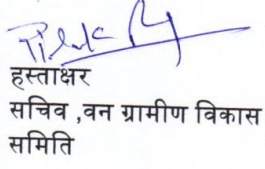 हस्ताक्षर
सचिव ,वन ग्रामीण विकास
समिति